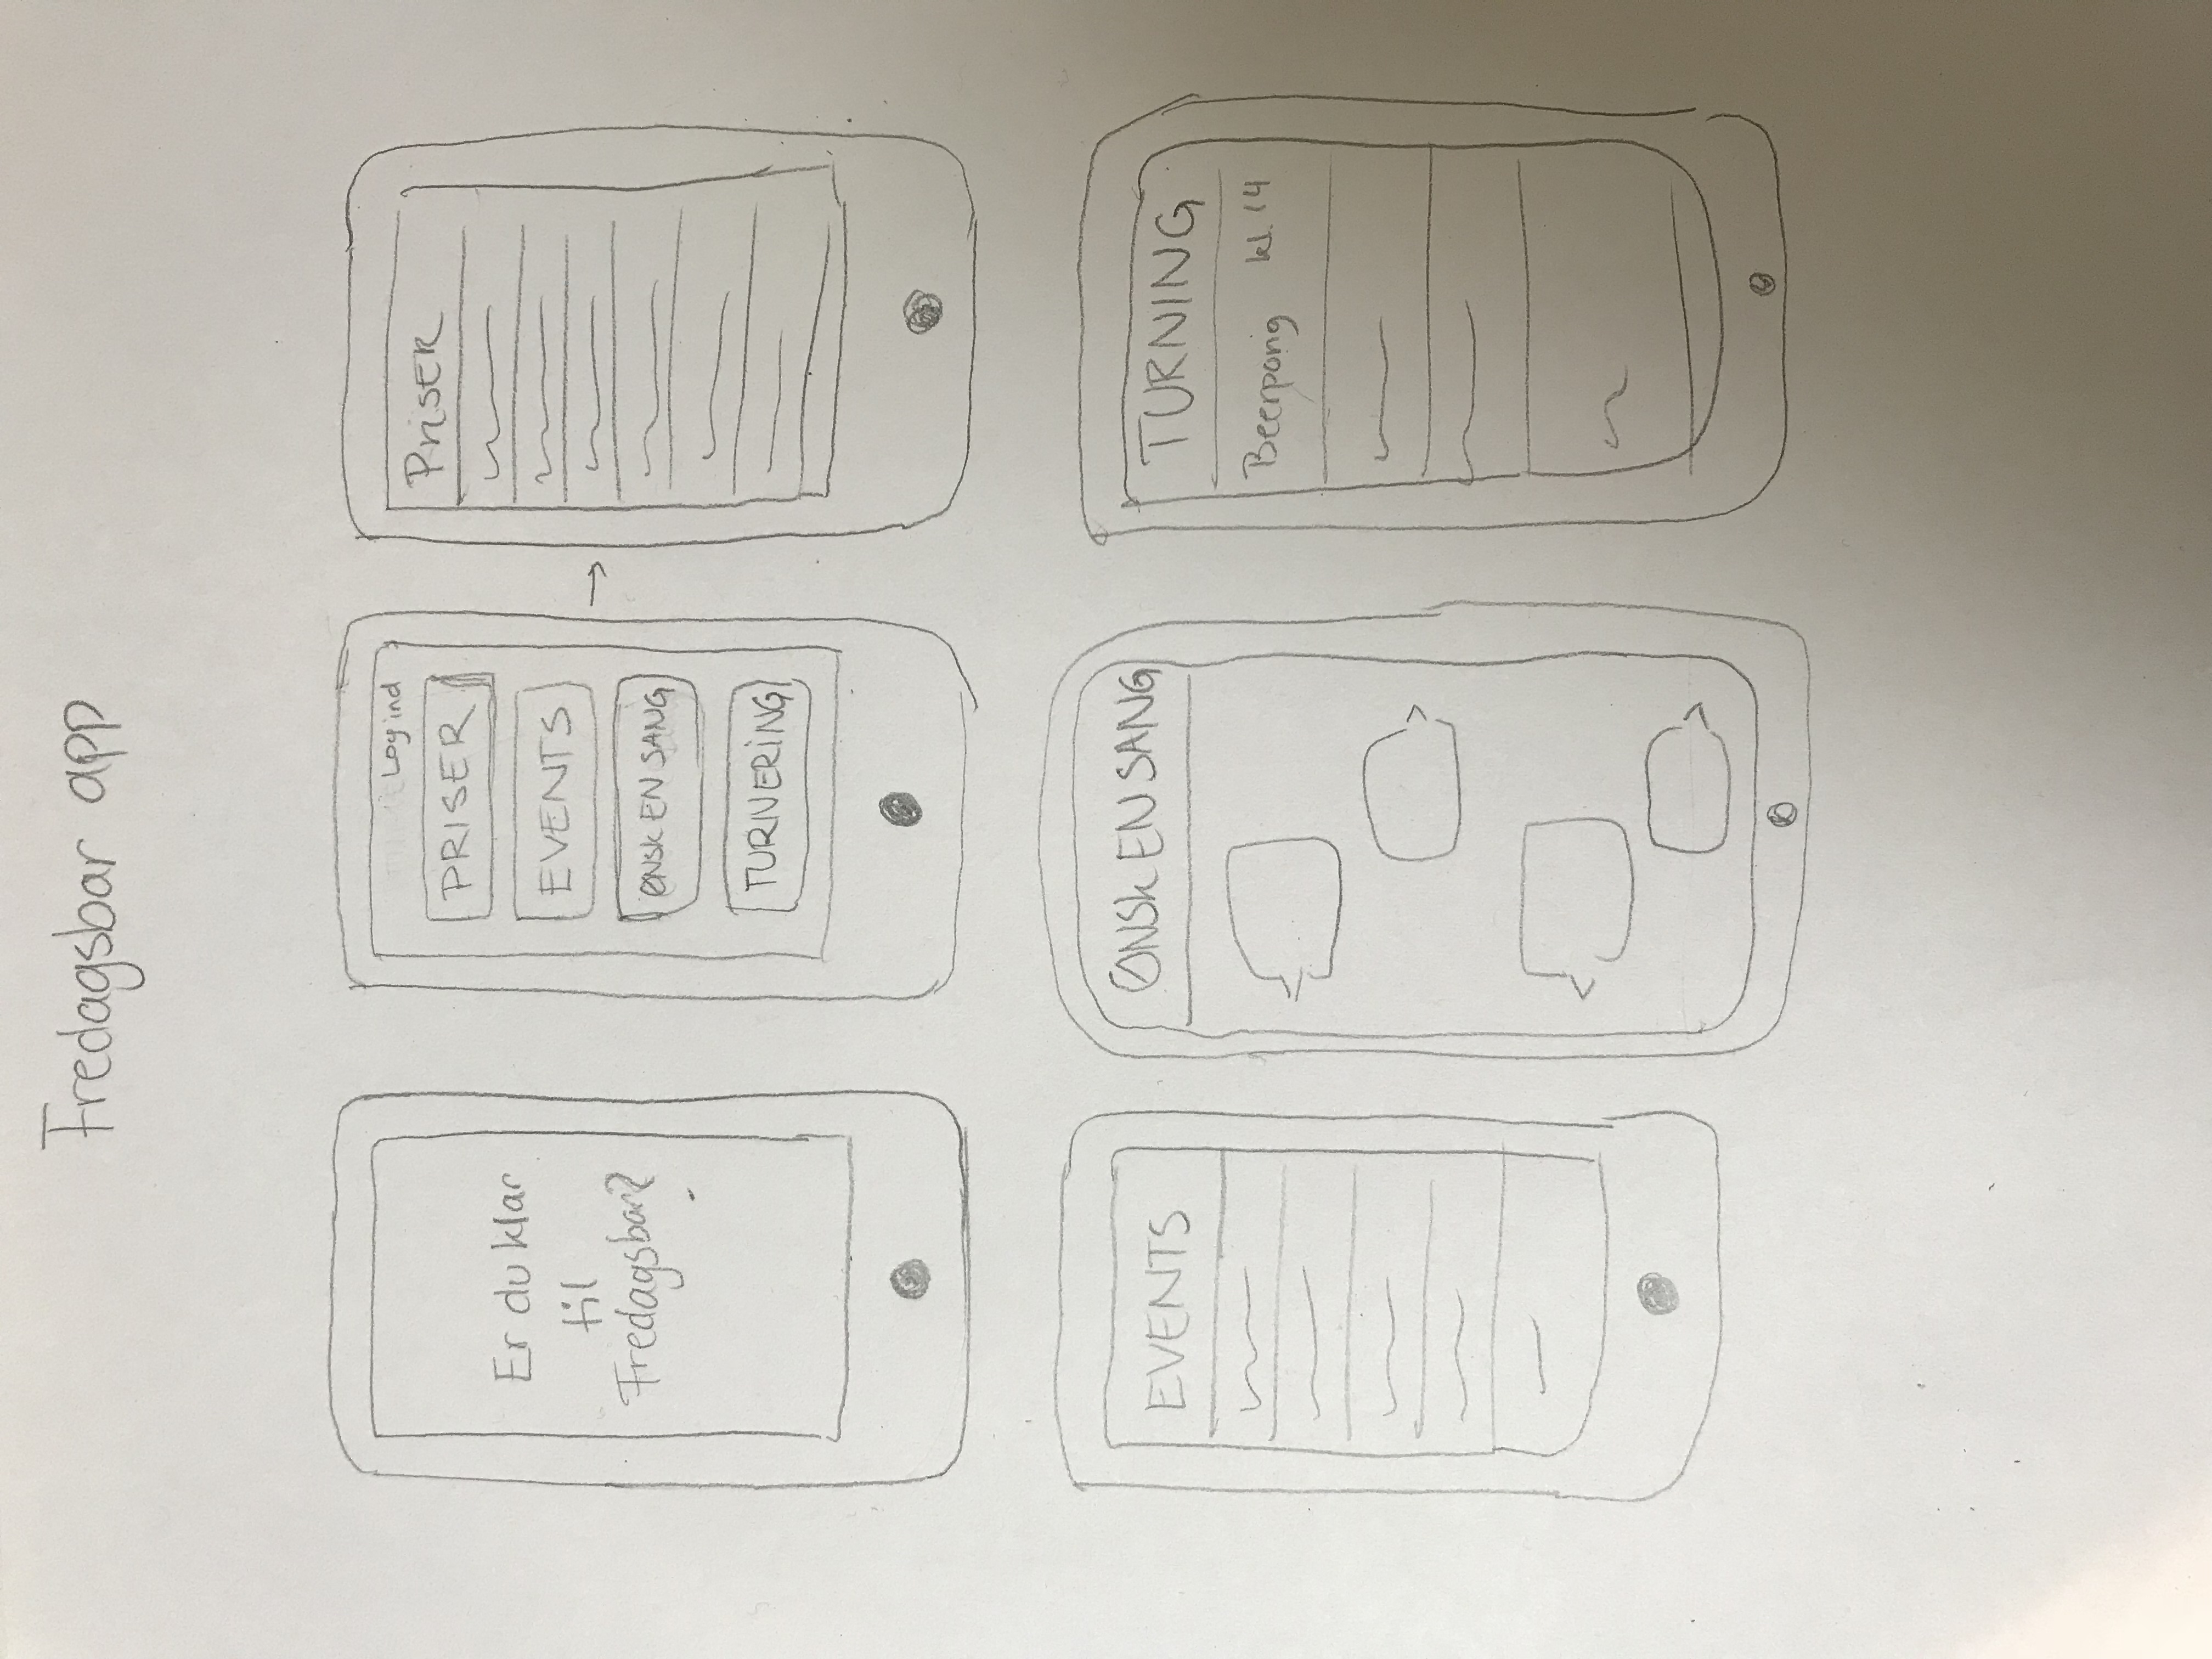 Fredagsbar app
Er du klar
til
Fredagsbar?
Log ind
PRISER
EVENTS
ØNSK EN SANG
TURNERING
PRISER
EVENTS
ØNSK EN SANG
TURNING
Beerpong kl. 14